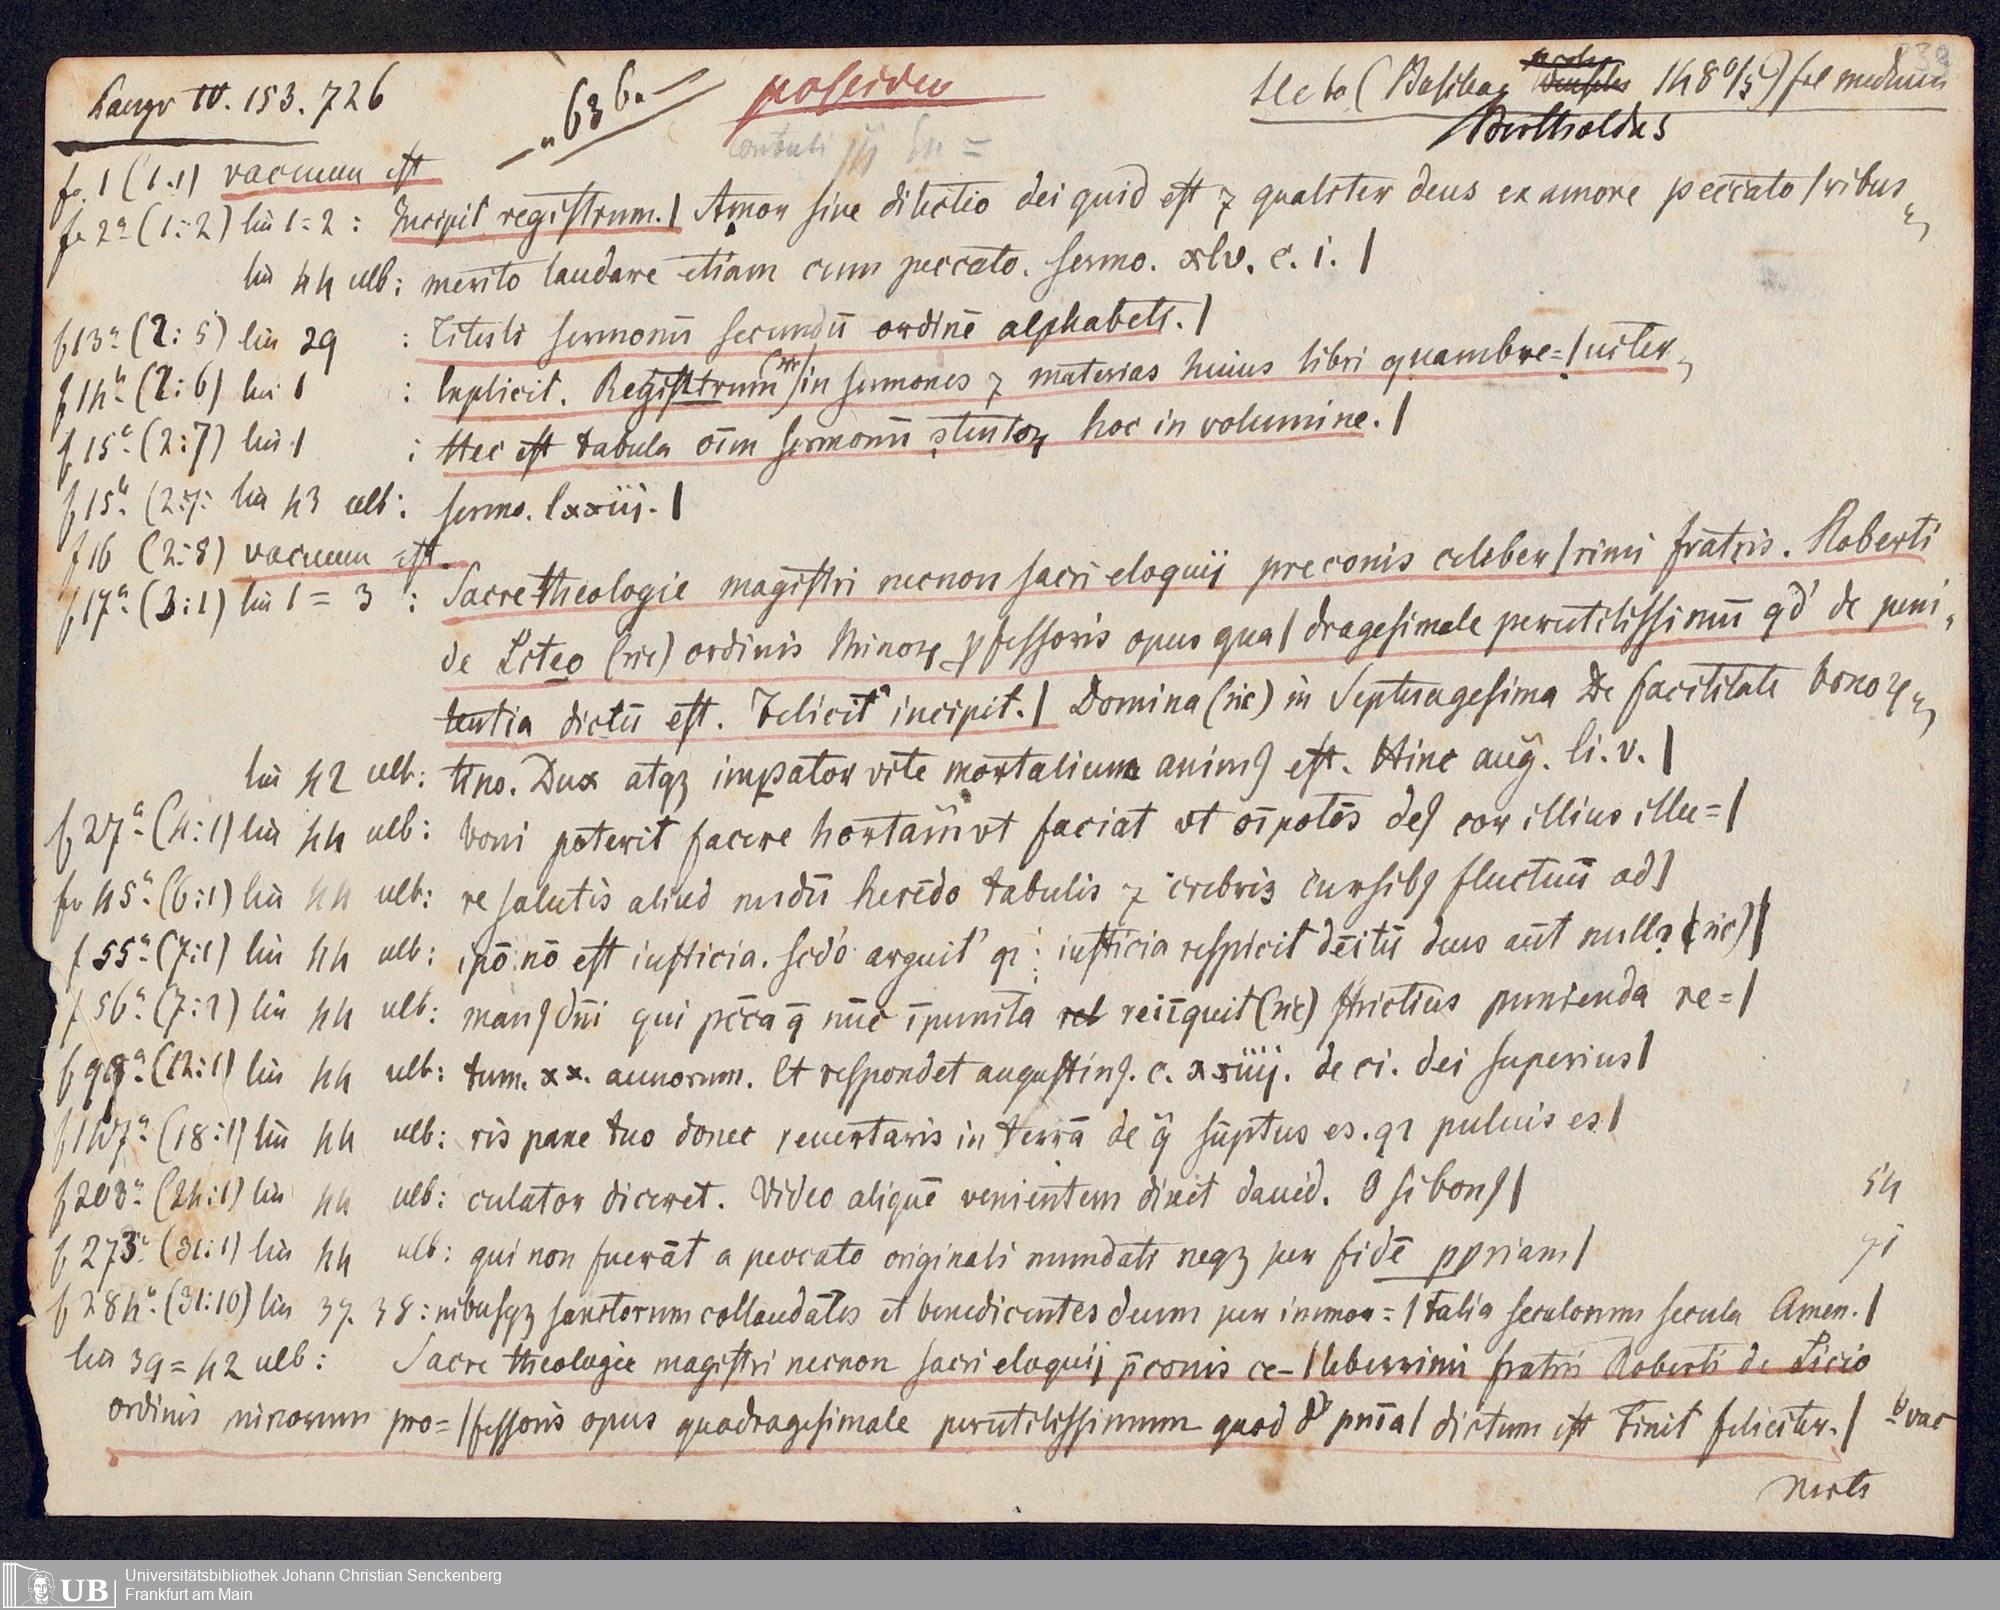 Panzer IV. 153. 726
„636."
possideu
s. l. e. t. a. (Basileae 1480/5) fol medium
Bertholdus
f. 1 (1.1) vacuum est
f 2ª (1:2) lin 1=2 : Incipit registrum. | Amor sive dilectio dei quid est ⁊ qualiter deus ex amore peccato|ribus
lin 44 ulb: merito laudare etiam cum peccato. Sermo. xlv. c. i. |
f 13ª (2:5) lin 29 : Tituli sermonū secundū ordinē alphabeti. |
f 14ᵇ (2:6) lin 1 : Explicit. Registrum (sic) in sermones ⁊ materias huius libri quambre=|uiter
f 15ª (2:7) lin 1 : Hec est tabula oīm sermonū ꝯtentoꝝ hoc in volumine. |
f 15ᵇ (2:7: lin 43 ulb: sermo. lxxiij. |
f 16 (2:8) vacuum est.
f 17ª (3:1) lin 1=3 : Sacre theologie magistri necnon sacri eloquij preconis celeber|rimi fratris. Roberti
de Liteo (sic) ordinis Minoꝝ ꝓfessoris opus qua|dragesimale perutilissimū qd' de peni
tentia dictū est. Felicitˀ incipit. | Domina (sic) in Septuagesima De facilitate bonoꝝ
lin 42 ulb: tino. Dux atqꝫ impator vite mortalium animꝰ est. Hinc aug̃. li. v. |
f 27ª (4:1) lin 44 ulb: boni poterit facere hortam̄ vt faciat vt oīpotēs deꝰ cor illius illu=|
f 45ª (6:1) lin 44 ulb: re salutis aliud nudū herēdo tabulis ⁊ crebris cursibꝰ fluctuū ad|
f 55ª (7:1) lin 44 ulb: ipō nō est iusticia. Scdo arguitˀ qꝛ : iusticia respicit dēitū deus aūt nulla (sic)|
f 56ª (7:2) lin 44 ulb: manꝰ dn̄i qui pc̄ca q̄ nūc īpunita reliīquit (sic) strictius punienda re=|
f 98ª (12:1) lin 44 ulb: tum. xx. annorum. Et respondet augustinꝰ. c. xxiiij. de ci. dei superius|
f 147ª (18:1) lin 44 ulb: ris pane tuo donec reuertaris in terrā de q̄ sūptus es. qꝛ puluis es|
f 203ª (24:1) lin 44 ulb: culator diceret. Video aliquē venientem dixit dauid. O si bonꝰ|
54
f 273ª (31:1) lin 44 ulb: qui non fuerāt a peccato originali mundati neqꝫ per fidē ppriam|
71
f 284ª (31:10) lin 37. 38: nibusqꝫ sanctorum collaudātes et benedicentes deum per inmor=|talia seculorum secula Amen. |
lin 39=42 ulb: Sacre theologie magistri necnon sacri eloquij p̄conis ce-|leberrimi fratris Roberti de Licio
ordinis minorum pro=|fessoris opus quadragesimale perutilissimum quod de pn̄ia| dictum est Finit feliciter. | ᵇ vac